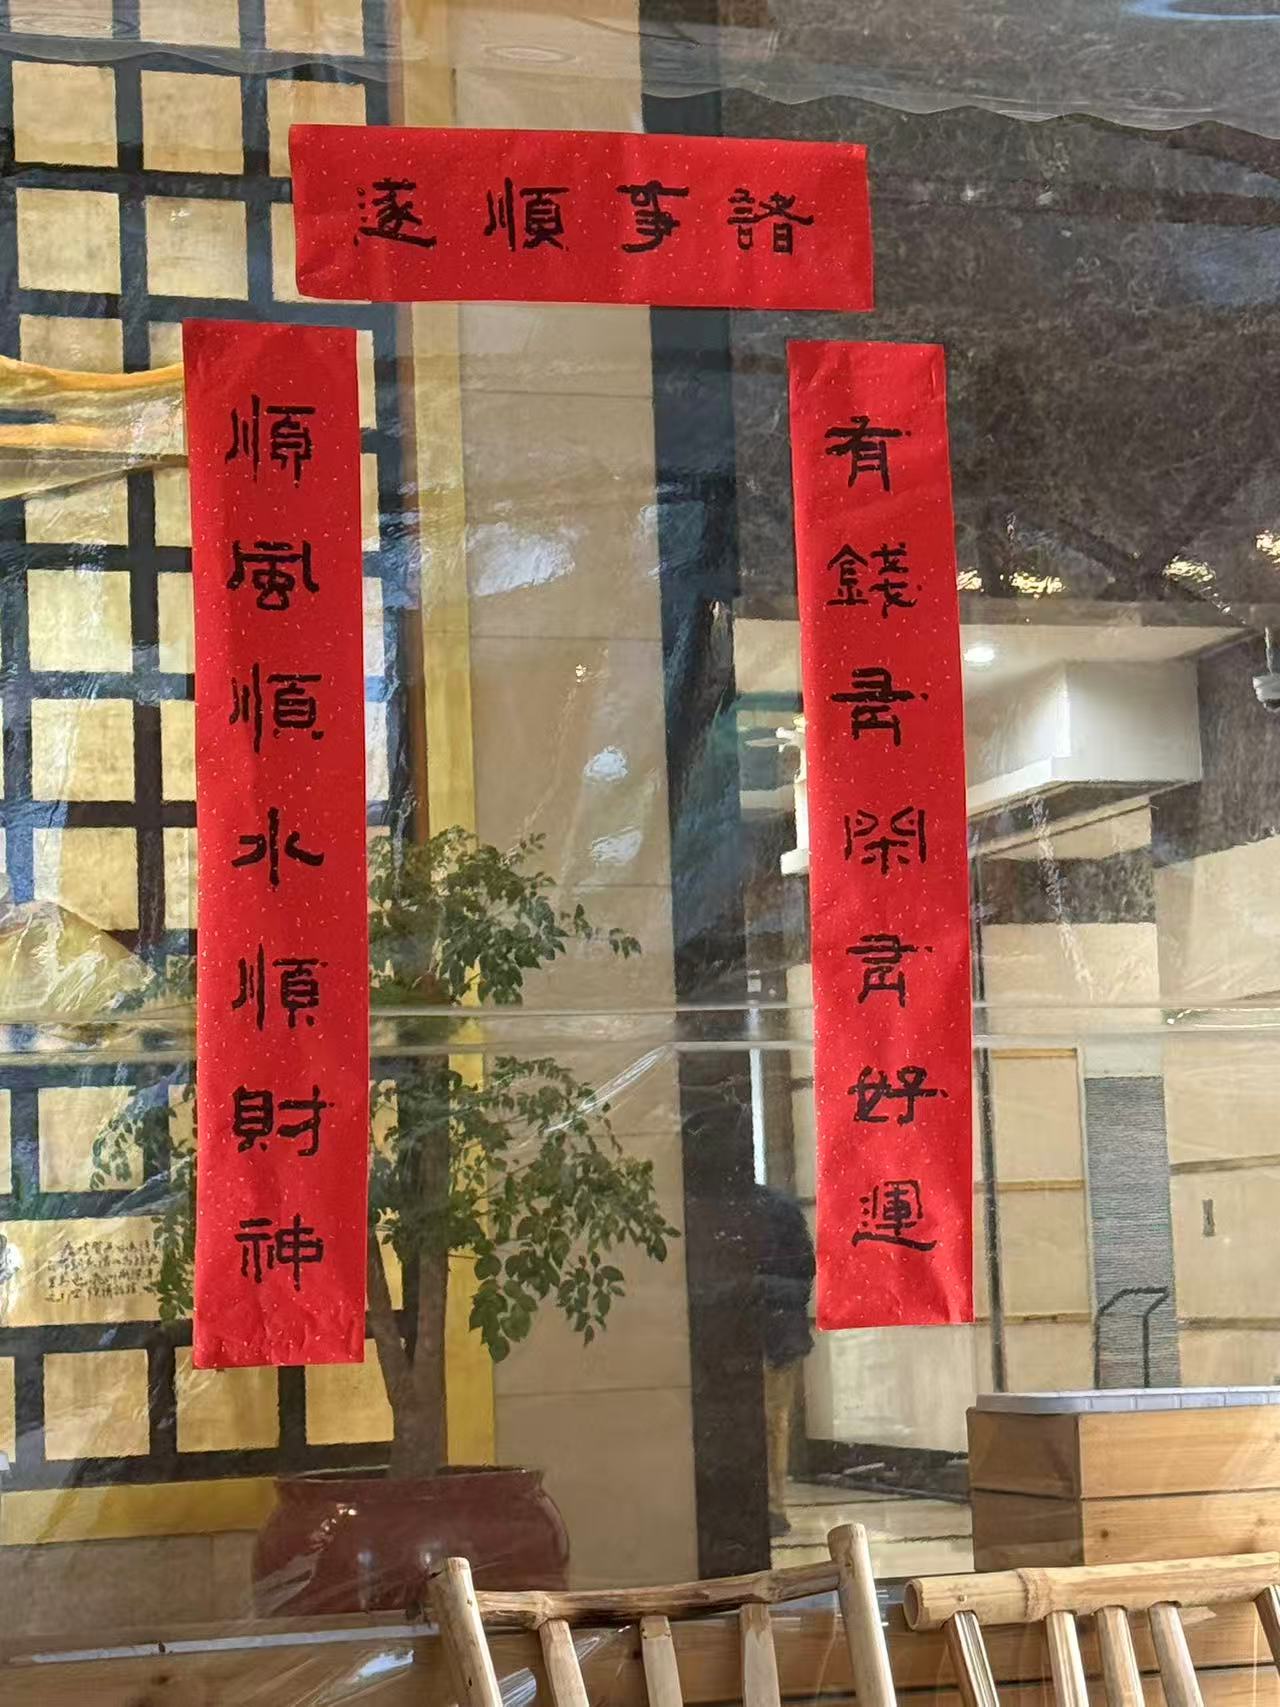 諸事順遂
有錢有閑有好運
順風順水順財神